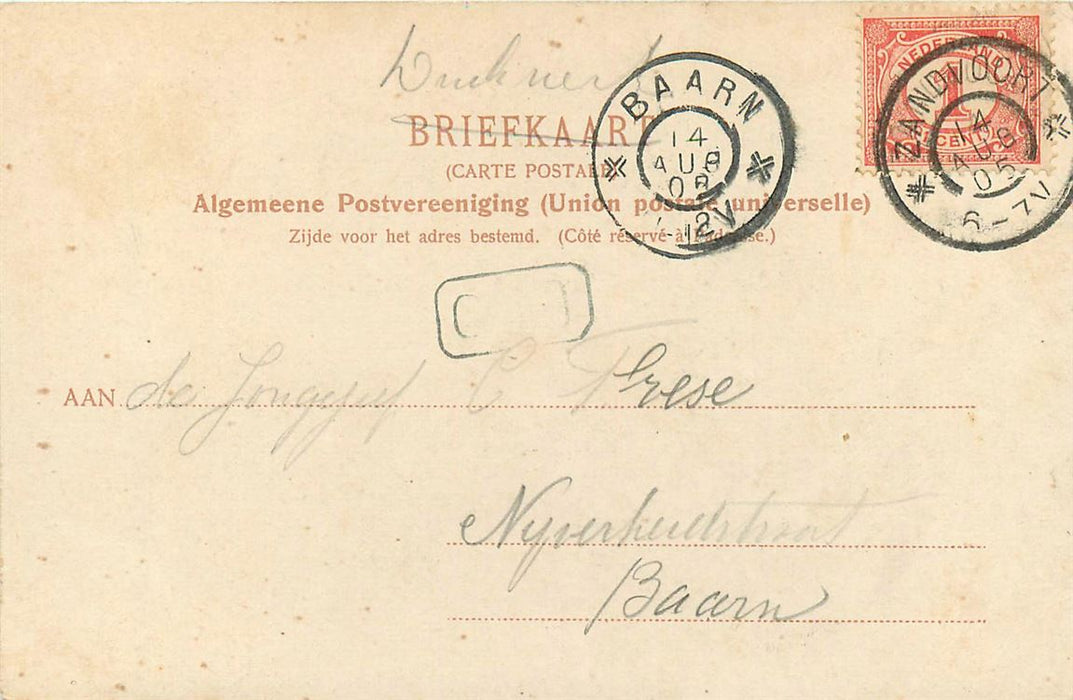 Drukwerk
BRIEFKAART
(CARTE POSTALE)
Algemeene Postvereeniging (Union postale universelle)
Zijde voor het adres bestemd. (Côté réservé à l'adresse.)
BAARN
14
AUG
12V
NEDERLAND
1
CENT
ZANDVOORT
14
AUG
05
6-7V
AAN de C Frese
Nyverheidstraat
Baarn